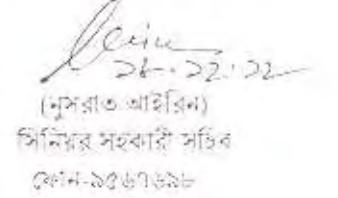 ২৮.১২.১২
(নুসরাত আইরিন)
সিনিয়র সহকারী সচিব
ফোন-৯৫৬৭৬৯৮